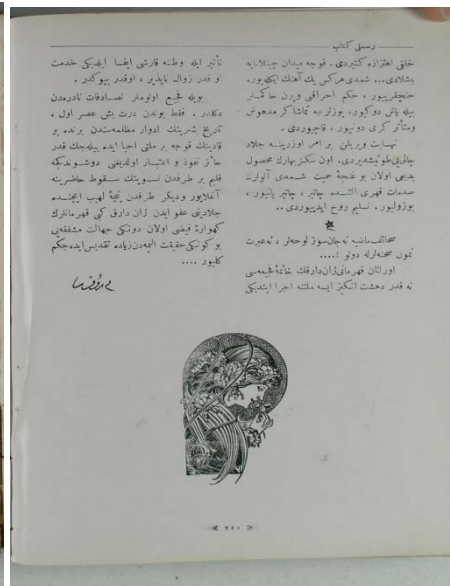 رسملی کتاب
خلقی اهتزازه کتیردی. قوجه میدان چینلامایه
باشلادی... شمدی هرکس یك آهنك ایکله یور.
خنجقیریور ، حکم احراقیی ویرن حاکملر
بیله یاش دوکیور، یوزلرجه تماشاکر مدهوش
ومتأثر کری دونیور ، قاچیوردی .
نهایت ویریلن بر امر اوزرینه جلاد
چالی‌یی طوتیشدیردی. اون سکز بهارك محصول
بدیعی اولان بو غنچهٔ حمیت شمدی آلولرك
صدمات قهری آلتنده چاتیر ، چاتیر یانیور ،
بوزولیور . تسلیم روح ایدییوردی ..
صحائف ماضیه نه جانسوز لوحه‌لر ، نه عبرت
نمون صحنه‌لرله دولو !....
اورلئان قهرمانی ژان دارقك خاتمهٔ فجیعه‌سی
نه قدر دهشت انکیز ایسه ملتنه اجرا ایتدیکی
تأثیر ایله وطنه قارشی ایفا ایلدیکی خدمت
او قدر زوال ناپذیر ، اوقدر بیوکدر .
بویله فجیع اولوملر تصادفات نادره‌دن
دکلدر . فقط بوندن درت بش عصر اول ،
تاریخ بشریتك ادوار مظلمه‌سندن برنده بر
قادینك قوجه بر ملتی احیا ایده بیله‌جك قدر
حائز نفوذ و اعتبار اولدیغنی دوشوندکجه
قلبم بر طرفدن نسوینك سقوط حاضرینه
آغلایور ودیکر طرفدن نیجهٔ لهیب ایچنده
جلادینی عفو ایدن ژان دارق کبی قهرمانلرك
کهوارهٔ فیضی اولان دونکی جهالت مشفقه‌یی
بو کونکی حقیقت الیمه‌دن زیاده تقدیس ایده‌جکم
کلیور ....
٢٥٠